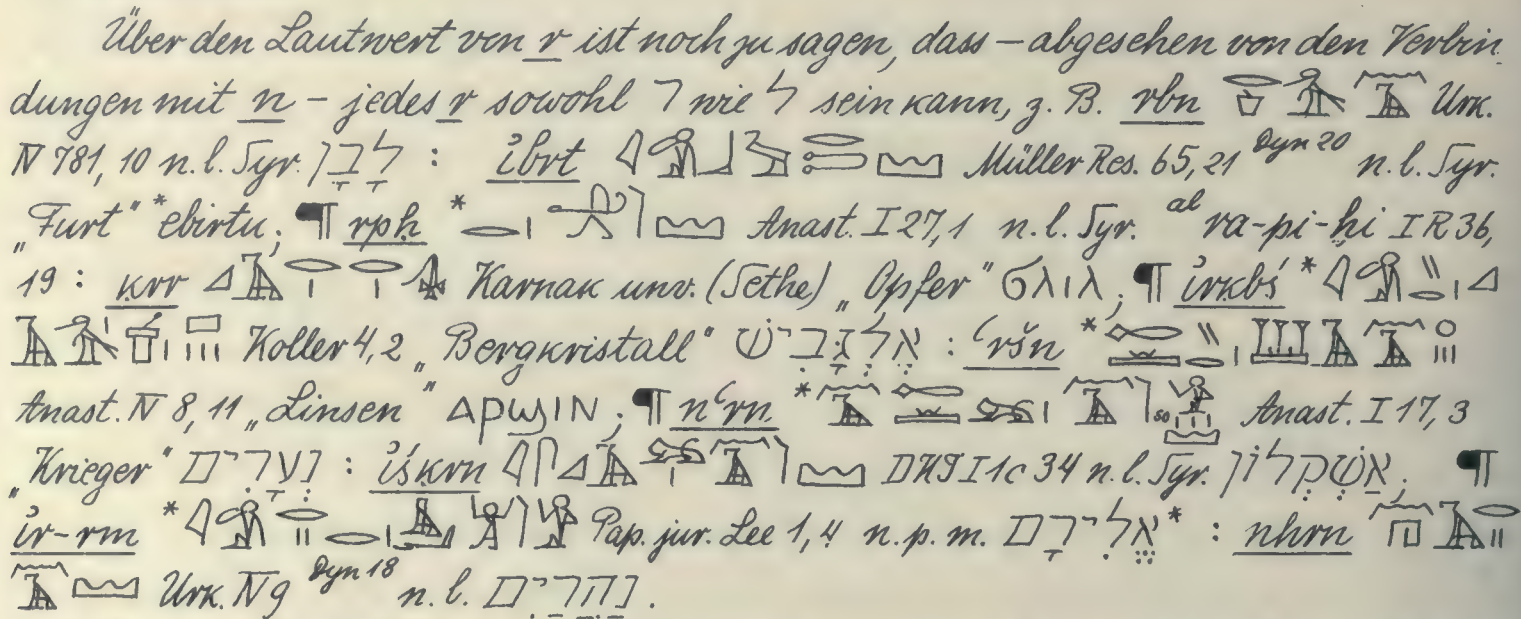 Über den Lautwert von r ist noch zu sagen, dass – abgesehen von den Verbin
dungen mit n – jedes r sowohl ר wie ל sein kann, z. B. rbn Urk.
IV 781, 10 n. l. Syr. לָבָן : ỉbrt Müller Res. 65, 21 Dyn 20 n. l. Syr.
„Furt“ *ebirtu; ¶ rpḥ * Anast. I 27, 1 n. l. Syr. al ra-pi-ḫi I R 36,
19 : ḳrr Karnak unv. (Sethe) „Opfer“ ϬΛΙΛ; ¶ ỉrkbś *
Koller 4, 2 „Bergkristall“ אֶלְגָּבִישׁ : ꜥršn *
Anast. IV 8, 11 „Linsen“ ΑΡϢΙΝ; ¶ nꜥrn * so Anast. I 17, 3
„Krieger“ נְעָרִים : ỉśḳrn DHI I 1c 34 n. l. Syr. אַשְׁקְלוֹן; ¶
ỉr-rm * Pap. jur. Lee 1, 4 n. p. m. אֱלִירָם* : nhrn
Urk. IV 9 Dyn 18 n. l. נַהֲרַיִם.